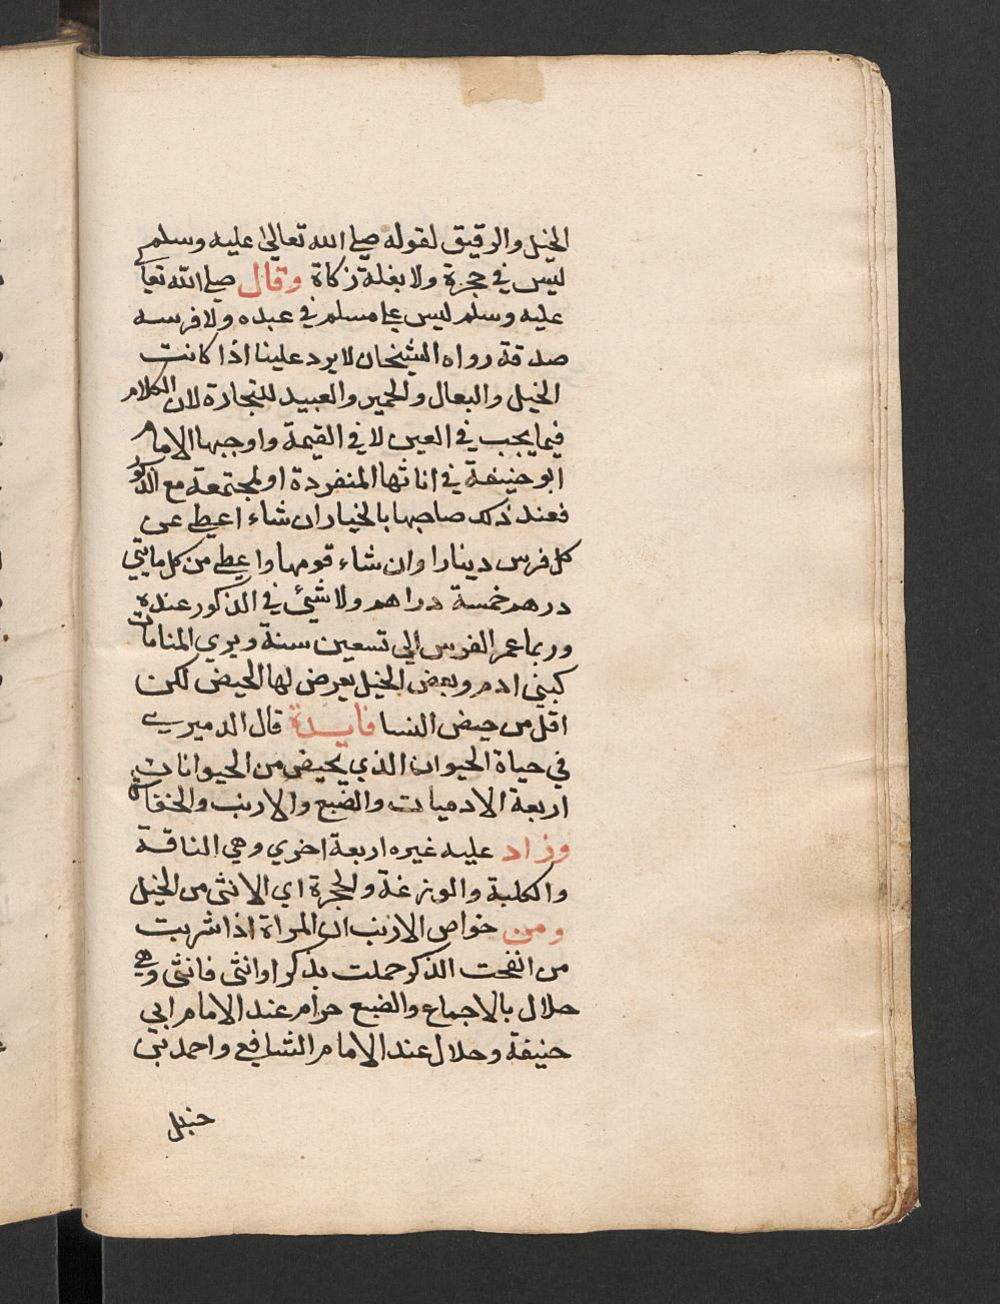 الخيل والرقيق لقوله صلي الله تعالي عليه وسلم
ليس في حجرة ولا بغلة زكاة وقال صلي الله تعا
عليه وسلم ليس علي مسلم في عبده ولا فرسه
صدقة رواه الشيخان لا يرد علينا اذا كانت
الخيل والبغال والحمير والعبيد للتجارة لان الكلام
فيما يجب في العين لا في القيمة واوجبها الامام
ابو حنيفة في اناثها المنفردة او المجتمعة مع الذكور
فعند ذلك صاحبها بالخيار ان شاء اعطي عن
كل فرس دينارا وان شاء قومها واعطي من كل مايتي
درهم خمسة دراهم ولا شيئ في الذكور عنده
وربما عمر الفرس الي تسعين سنة ويري المنامات
كبني ادم وبعض الخيل يعرض لها الحيض لكن
اقل من حيض النسا فايدة قال الدميري
في حياة الحيوان الذي يحيض من الحيوانات
اربعة الادميات والضبع والارنب والخفاش
وزاد عليه غيره اربعة اخري وهي الناقة
والكلبة والوزغة والحجرة اي الانثي من الخيل
ومن خواص الارنب ان المراة اذا شربت
من انفحت الذكر حملت بذكر او انثي فانثي وهي
حلال بالاجماع والضبع حرام عند الامام ابي
حنيفة وحلال عند الامام الشافعي واحمد بن
حنبل